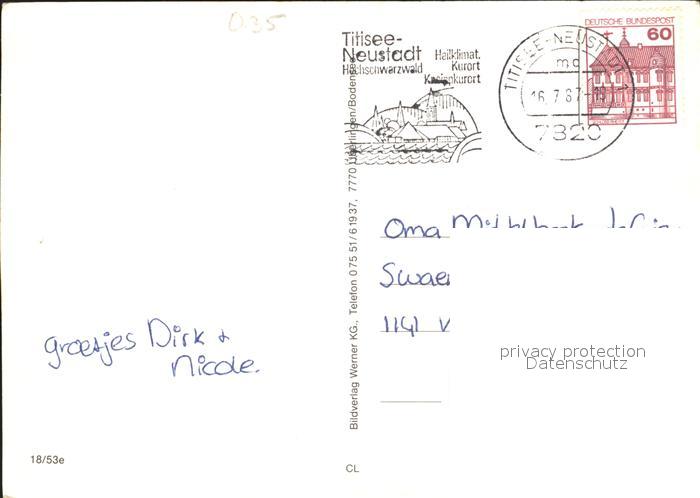 0.35
Titisee-
Neustadt
Hochschwarzwald
Heilklimat.
Kurort
Kneippkurort
TITISEE-NEUSTADT 1
mc
16.7.87-18
7820
DEUTSCHE BUNDESPOST
60
Bildverlag Werner KG., Telefon 0 75 51/6 19 37, 7770 Überlingen/Bodensee
Oma
1141 V
groetjes Dirk +
Nicole.
privacy protection
Datenschutz
18/53e
CL